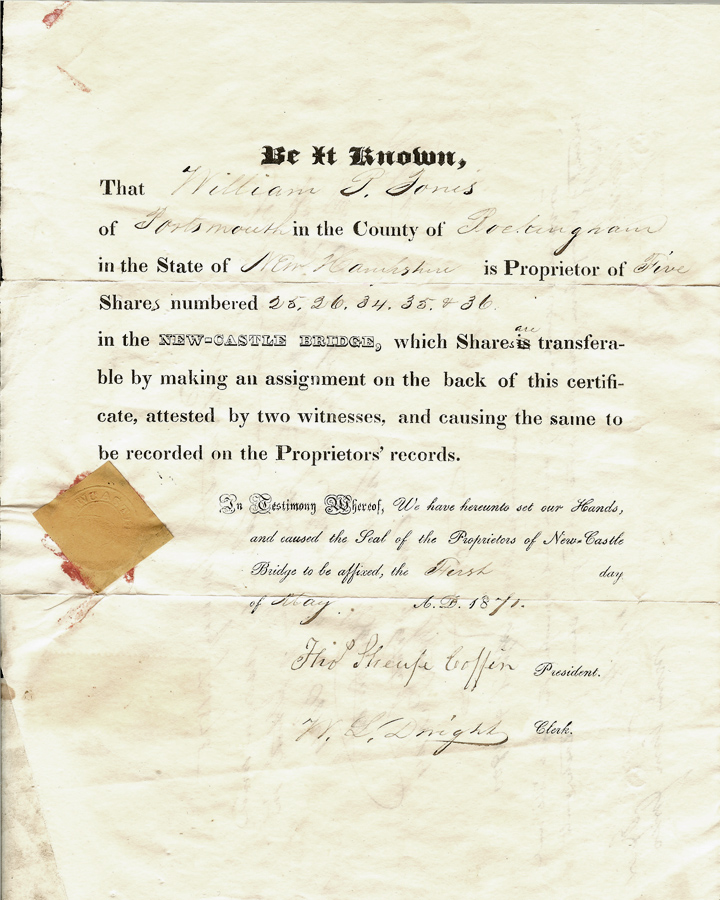 Be It Known,
That William P. Jones
of Portsmouth in the County of Rockingham
in the State of New Hampshire is Proprietor of Five
Shares numbered 25, 26, 34, 35, & 36.
are
in the NEW-CASTLE BRIDGE, which Shares is transfera-
ble by making an assignment on the back of this certifi-
cate, attested by two witnesses, and causing the same to
be recorded on the Proprietors' records.
In Testimony Whereof, We have hereunto set our Hands,
and caused the Seal of the Proprietors of New-Castle
Bridge to be affixed, the First day
of May A. D. 1871.
Tho Sheafe Coffin President.
W. L. Dwight Clerk.